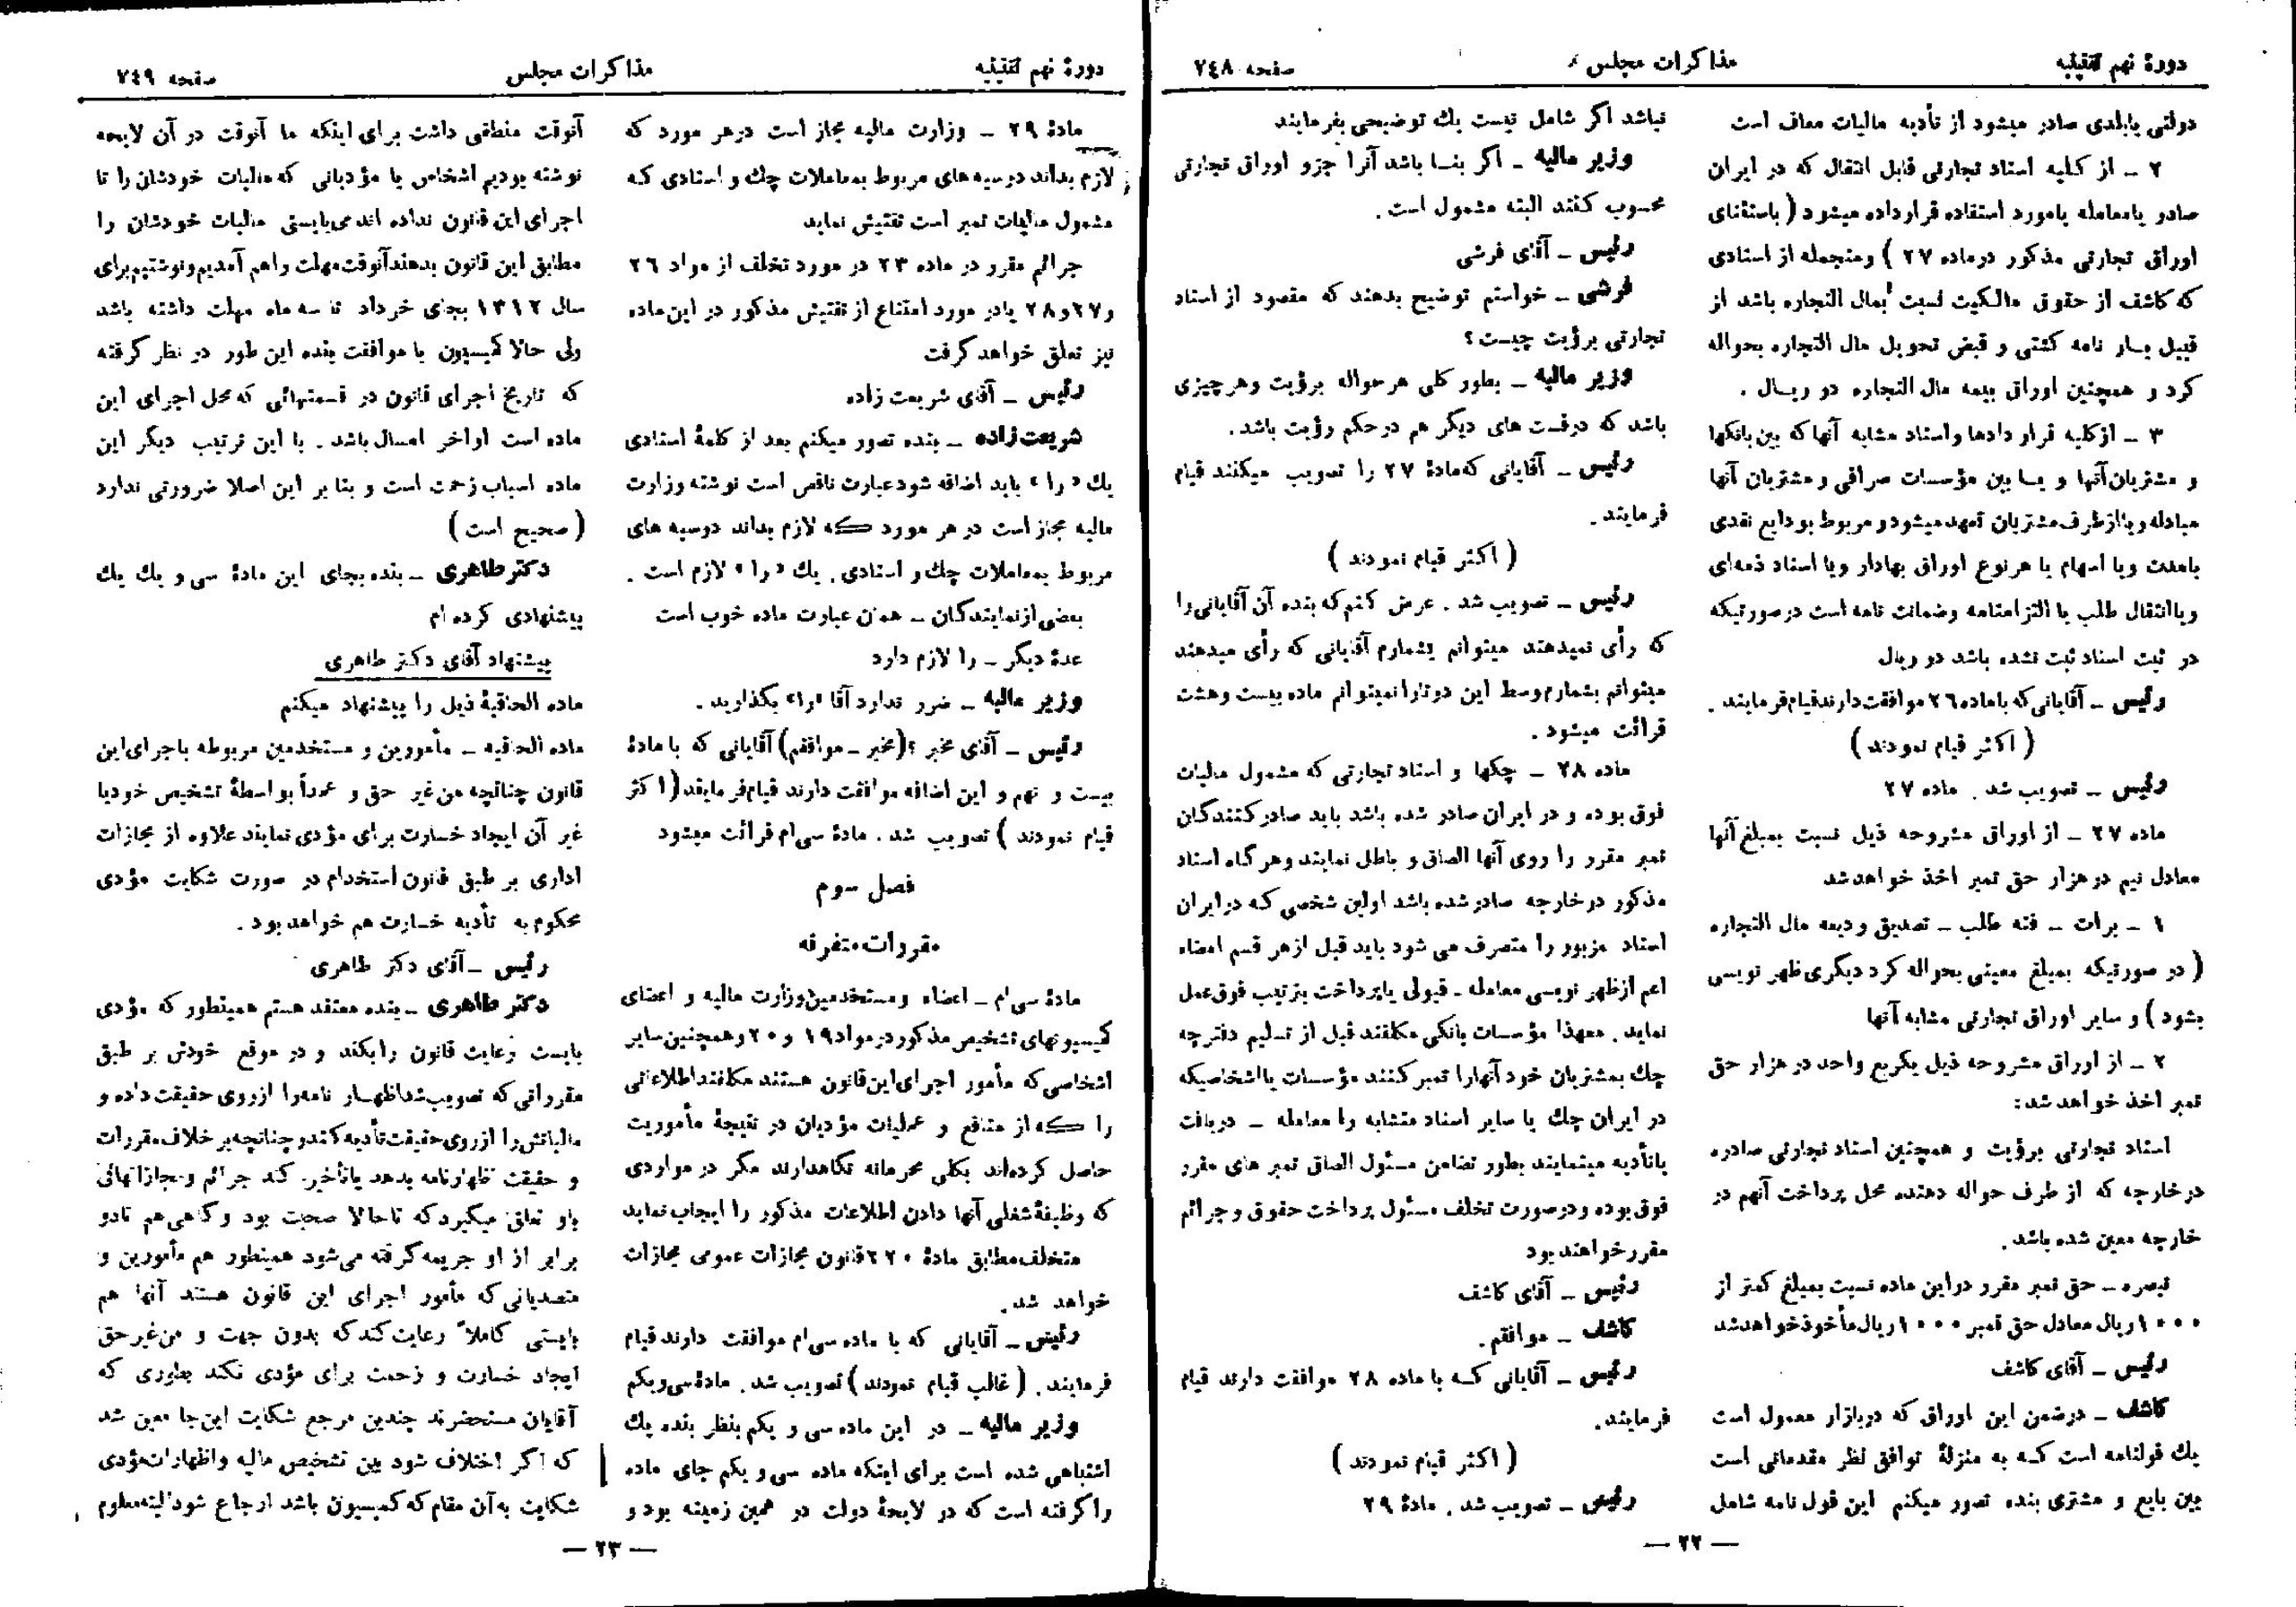 دورهٔ نهم تقنینیه
مذاکرات مجلس
صفحه ۷٤۸
دولتی یابلدی صادر میشود از تأدیه مالیات معاف است
۲ ـ از کلیه اسناد تجارتی قابل انتقال که در ایران
صادر یامعامله یامورد استفاده قرارداده میشود (باستثنای
اوراق تجارتی مذکور درماده ۲۷ ) ومنجمله از اسنادی
که کاشف از حقوق مالکیت نسبت بمال التجاره باشد از
قبیل بـار نامه کشتی و قبض تحویل مال التجاره بحواله
کرد و همچنین اوراق بیمه مال التجاره دو ریـال .
۳ ـ ازکلیه قرار دادها واسناد مشابه آنها که بین بانکها
و مشتریان آنها و یـا بین مؤسسات صرافی و مشتریان آنها
مبادله ویا ازطرف مشتریان تعهد میشود و مربوط بودایع نقدی
بامدت ویا اسهام یا هرنوع اوراق بهادار ویا اسناد ذمه‌ای
ویاانتقال طلب یا التزامنامه وضمانت نامه است درصورتیکه
در ثبت اسناد ثبت نشده باشد دو ریال
رئیس ـ آقایانی که باماده ۲٦ موافقت دارند قیام فرمایند .
( اکثر قیام نمودند )
رئیس ـ تصویب شد . ماده ۲۷
ماده ۲۷ ـ از اوراق مشروحه ذیل نسبت بمبلغ آنها
معادل نیم درهزار حق تمبر اخذ خواهد شد
۱ ـ برات ـ فته طلب ـ تصدیق ودیعه مال التجاره
( در صورتیکه بمبلغ معینی بحواله کرد دیگری ظهر نویسی
بشود ) و سایر اوراق تجارتی مشابه آنها
۲ ـ از اوراق مشروحه ذیل یکربع واحد در هزار حق
تمبر اخذ خواهد شد:
اسناد تجارتی برؤیت و همچنین اسناد تجارتی صادره
درخارجه که از طرف حواله دهنده محل پرداخت آنهم در
خارجه معین شده باشد.
تبصره ـ حق تمبر مقرر دراین ماده نسبت بمبلغ کمتر از
۱۰۰۰ ریال معادل حق تمبر ۱۰۰۰ ریال مأخوذ خواهد شد
رئیس ـ آقای کاشف
کاشف ـ درضمن این اوراق که دربازار معمول است
یك قولنامه است کـه به منزلهٔ توافق نظر مقدماتی است
بین بایع و مشتری بنده تصور میکنم این قول نامه شامل
نباشد اگر شامل نیست یك توضیحی بفرمایند
وزیر مالیه ـ اگر بنـا باشد آنرا جزو اوراق تجارتی
محسوب کنند البته مشمول است .
رئیس ـ آقای فرشی
فرشی ـ خواستم توضیح بدهند که مقصود از اسناد
تجارتی برؤیت چیست ؟
وزیر مالیه ـ بطور کلی هرحواله برؤیت وهرچیزی
باشد که درقسمت های دیگر هم درحکم رؤیت باشد .
رئیس ـ آقایانی که مادهٔ ۲۷ را تصویب میکنند قیام
فرمایند .
( اکثر قیام نمودند )
رئیس ـ تصویب شد . عرض کنم که بنده آن آقایانی را
که رأی نمیدهند میتوانم بشمارم آقایانی که رأی میدهند
میتوانم بشمارم وسط این دو تارا نمیتوانم ماده بیست وهشت
قرائت میشود .
ماده ۲۸ ـ چکها و اسناد تجارتی که مشمول مالیات
فوق بوده و در ایران صادر شده باشد باید صادرکنندگان
تمبر مقرر را روی آنها الصاق و باطل نمایند وهرگاه اسناد
مذکور درخارجه صادر شده باشد اولین شخصی که درایران
اسناد مزبور را متصرف می شود باید قبل ازهر قسم امضاء
اعم ازظهر نویسی معامله ـ قبولی یاپرداخت بترتیب فوق عمل
نماید . معهذا مؤسسات بانکی مکلفند قبل از تسلیم دفترچه
چك بمشتریان خود آنهارا تمبر کنند مؤسسات یااشخاصیکه
در ایران چك یا سایر اسناد متشابه را معامله ـ دریافت
یاتأدیه مینمایند بطور تضامن مسئول الصاق تمبر های مقرر
فوق بوده ودرصورت تخلف مسئول پرداخت حقوق وجرائم
مقرر خواهند بود
رئیس ـ آقای کاشف
کاشف ـ موافقم .
رئیس ـ آقایانی کـه با ماده ۲۸ موافقت دارند قیام
فرمایند.
( اکثر قیام نمودند )
رئیس ـ تصویب شد . مادهٔ ۲۹
— ۲۲ —
دورهٔ نهم تقنینیه
مذاکرات مجلس
صفحه ۷٤۹
مادهٔ ۲۹ ـ وزارت مالیه مجاز است درهر مورد که
لازم بداند دوسیه‌های مربوط بمعاملات چك و اسنادی کـه
مشمول مالیات تمبر است تفتیش نماید
جرائم مقرر در ماده ۲۳ در مورد تخلف از مواد ۲٦
و۲۷و۲۸ یادر مورد امتناع از تفتیش مذکور در این ماده
نیز تعلق خواهد گرفت
رئیس ـ آقای شریعت زاده
شریعت زاده ـ بنده تصور میکنم بعد از کلمهٔ اسنادی
یك «را» باید اضافه شود عبارت ناقص است نوشته وزارت
مالیه مجاز است در هر مورد کـه لازم بداند دوسیه های
مربوط بمعاملات چك و اسنادی . یك «را» لازم است .
بعضی از نمایندگان ـ همان عبارت ماده خوب است
عدهٔ دیگر ـ را لازم دارد
وزیر مالیه ـ ضرر ندارد آقا «را» بگذارید .
رئیس ـ آقای مخبر ؟ (مخبر ـ موافقم) آقایانی که با مادهٔ
بیست و نهم و این اضافه موافقت دارند قیام فرمایند (اکثر
قیام نمودند ) تصویب شد . مادهٔ سی‌ام قرائت میشود
فصل سوم
مقررات متفرقه
مادهٔ سی‌ام ـ اعضاء ومستخدمین وزارت مالیه و اعضای
کمیسیونهای تشخیص مذکور در مواد ۱۹ و ۲۰ وهمچنین سایر
اشخاصی که مأمور اجرای این قانون هستند مکلفند اطلاعاتی
را کـه از منافع و عملیات مؤدیان در نتیجهٔ مأموریت
حاصل کرده‌اند بکلی محرمانه نگاهدارند مگر در مواردی
که وظیفهٔ شغلی آنها دادن اطلاعات مذکور را ایجاب نماید
متخلف مطابق مادهٔ ۲۲۰ قانون مجازات عمومی مجازات
خواهد شد.
رئیس ـ آقایانی که با ماده سی‌ام موافقت دارند قیام
فرمایند . ( غالب قیام نمودند ) تصویب شد . مادهٔ سی‌ویکم
وزیر مالیه ـ در این ماده سی و یکم بنظر بنده یك
اشتباهی شده است برای اینکه ماده سی و یکم جای ماده
را گرفته است که در لایحهٔ دولت در همین زمینه بود و
آنوقت منطقی داشت برای اینکه ما آنوقت در آن لایحه
نوشته بودیم اشخاص یا مؤدیانی که مالیات خودشان را تا
اجرای این قانون نداده اند می‌بایستی مالیات خودشان را
مطابق این قانون بدهند آنوقت مهلت را هم آمدیم و نوشتیم برای
سال ۱۳۱۲ بجای خرداد تا سه ماه مهلت داشته باشد
ولی حالا کمیسیون با موافقت بنده این طور در نظر گرفته
که تاریخ اجرای قانون در قسمتهائی که محل اجرای این
ماده است اواخر امسال باشد . با این ترتیب دیگر این
ماده اسباب زحمت است و بنا بر این اصلا ضرورتی ندارد
( صحیح است )
دکتر طاهری ـ بنده بجای این مادهٔ سی و یك یك
پیشنهادی کرده ام
پیشنهاد آقای دکتر طاهری
ماده الحاقیهٔ ذیل را پیشنهاد میکنم
ماده الحاقیه ـ مأمورین و مستخدمین مربوطه باجرای این
قانون چنانچه من غیر حق و عمداً بواسطهٔ تشخیص خود یا
غیر آن ایجاد خسارت برای مؤدی نمایند علاوه از مجازات
اداری بر طبق قانون استخدام در صورت شکایت مؤدی
محکوم به تأدیه خسارت هم خواهد بود .
رئیس ـ آقای دکتر طاهری
دکتر طاهری ـ بنده معتقد هستم همینطور که مؤدی
بایست رعایت قانون را بکند و در موقع خودش بر طبق
مقرراتی که تصویب شد اظهـار نامه را ازروی حقیقت داده و
مالیاتش را ازروی حقیقت تأدیه کند و چنانچه بر خلاف مقررات
و حقیقت اظهارنامه بدهد یا تأخیر کند جرائم و مجازاتهائی
باو تعلق میگیرد که تا حالا صحبت بود و گاهی هم تا دو
برابر از او جریمه گرفته می‌شود همینطور هم مأمورین و
متصدیانی که مأمور اجرای این قانون هستند آنها هم
بایستی کاملاً رعایت کند که بدون جهت و من غیر حق
ایجاد خسارت و زحمت برای مؤدی نکند بطوری که
آقایان مستحضرند چندین مرجع شکایت این‌جا معین شد
که اگر اختلاف شود بین تشخیص مالیه واظهارات مؤدی
شکایت به آن مقام که کمیسیون باشد ارجاع شود البته معلوم
— ۲۳ —